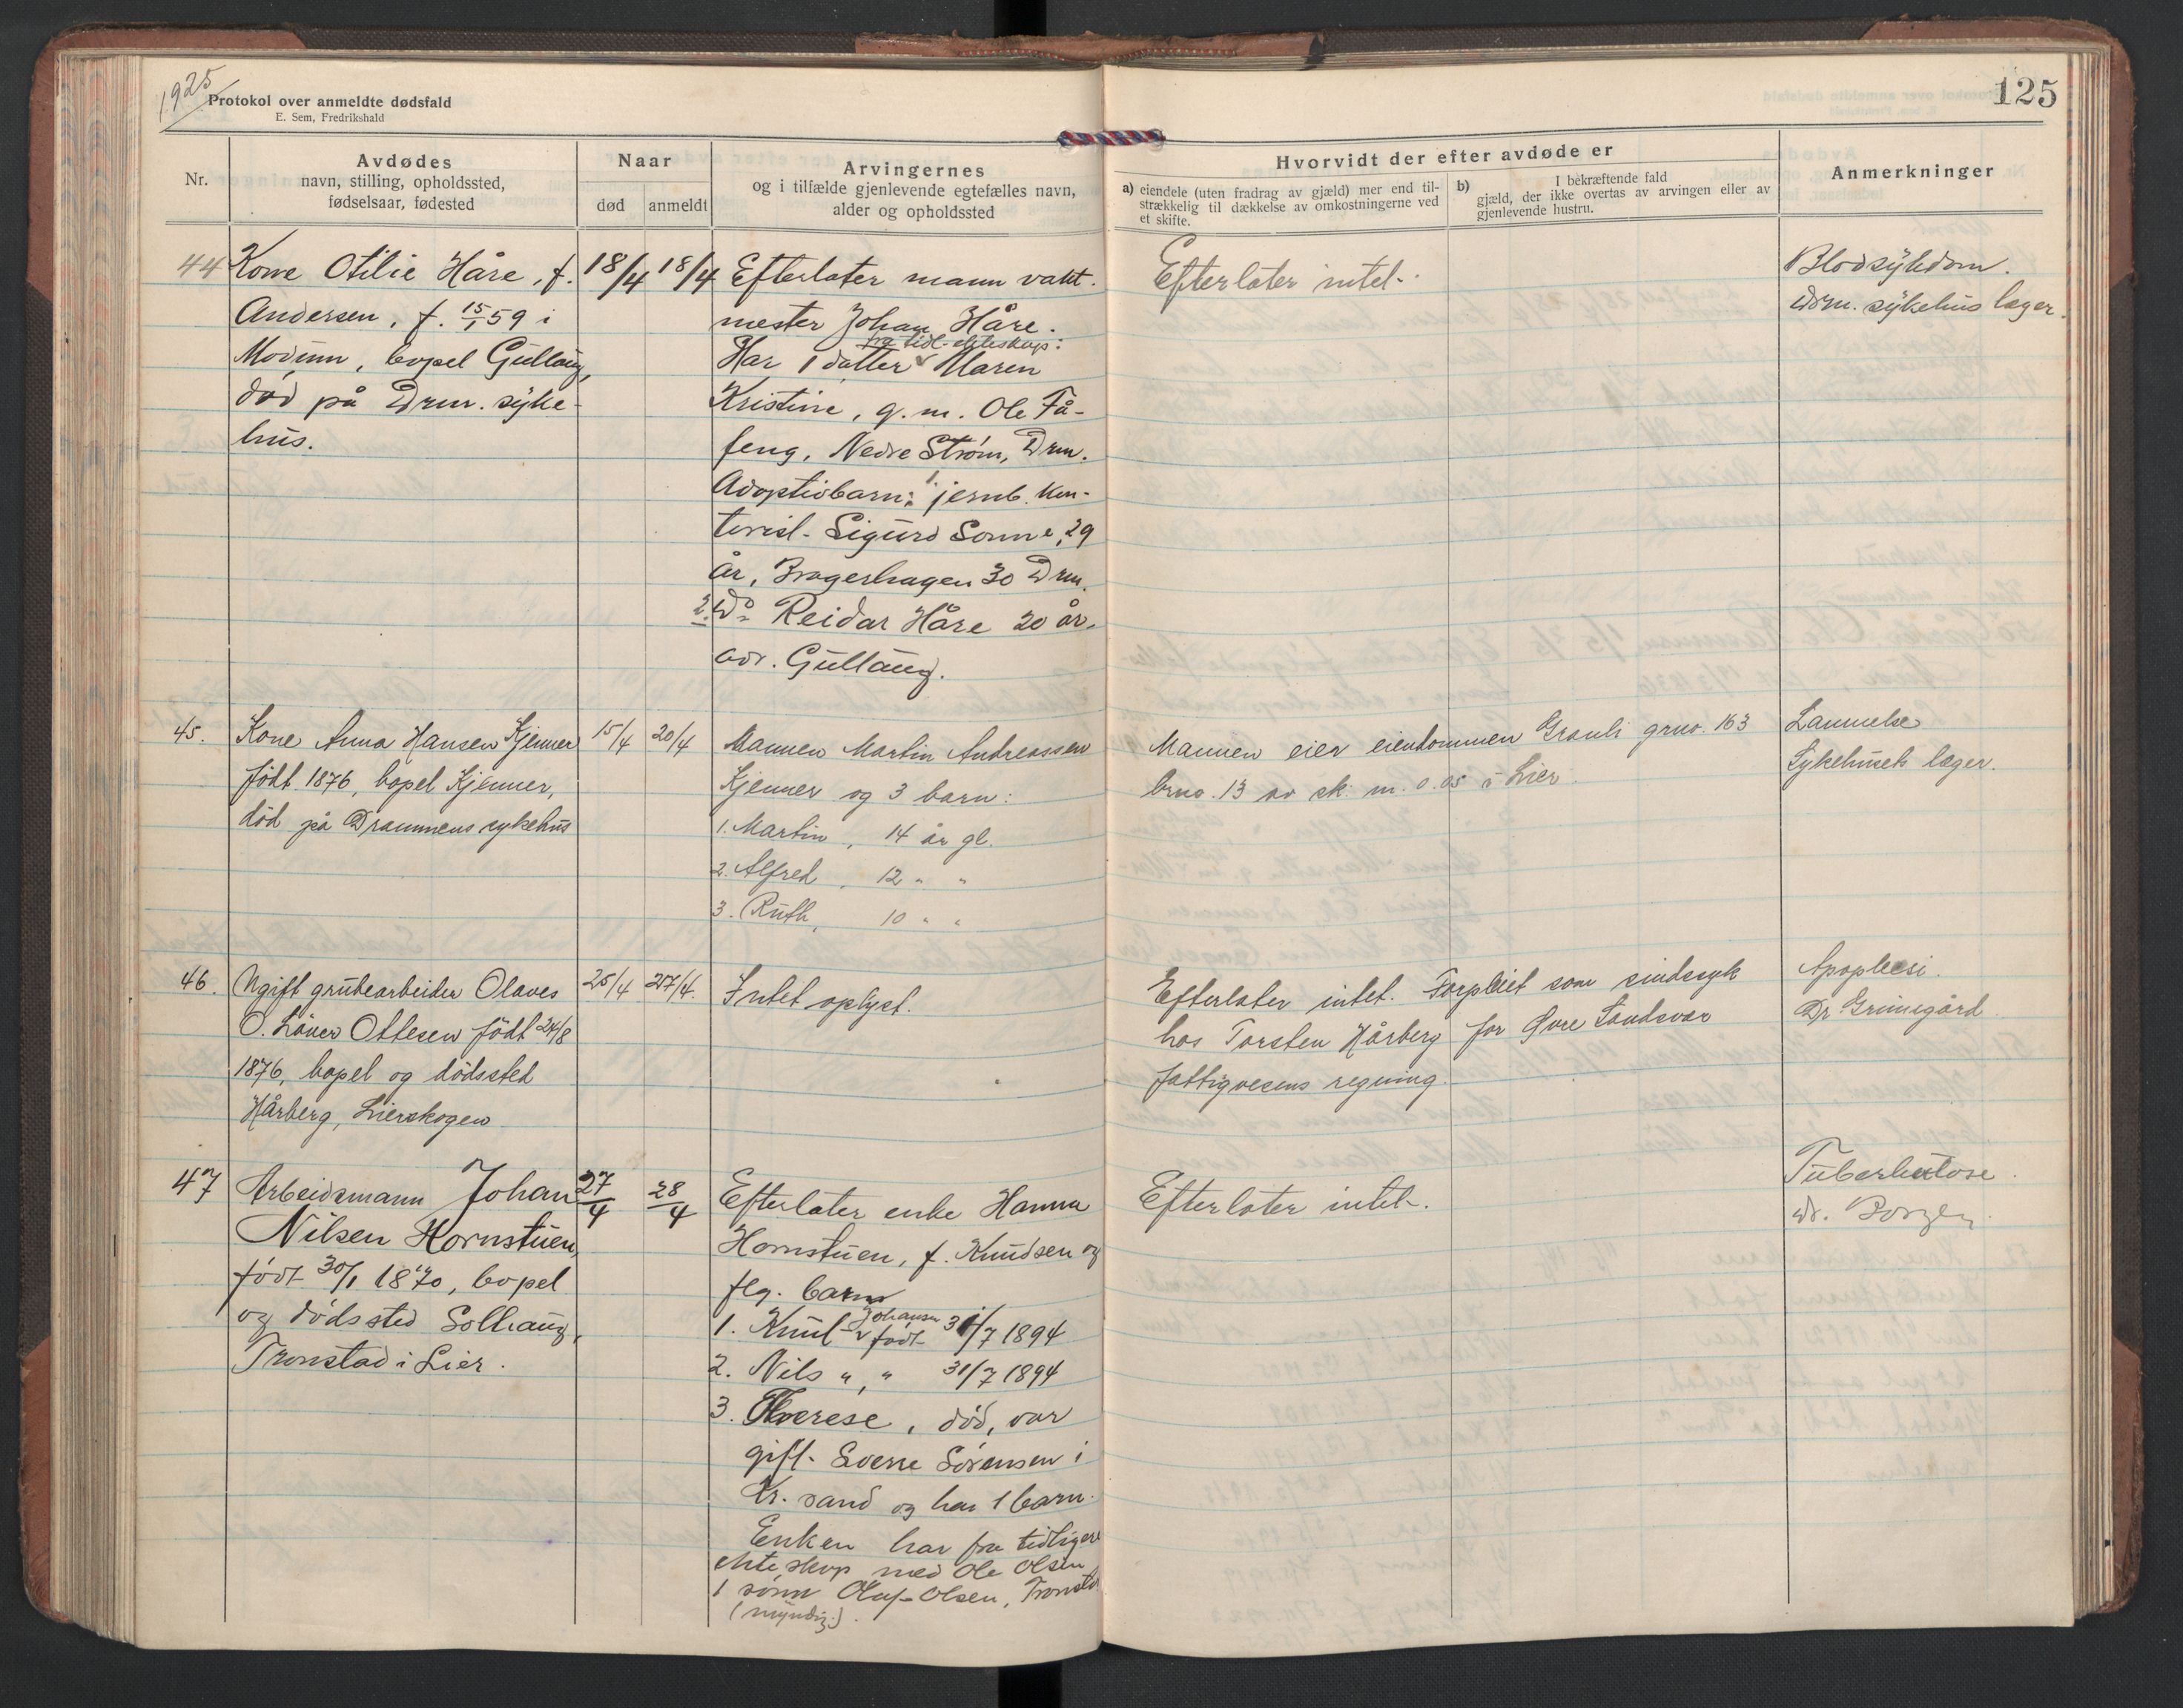 1925
Protokol over anmeldte dødsfald
E. Sem, Fredrikshald
125
Nr.
Avdødes
navn, stilling, opholdssted,
fødselsaar, fødested
Naar
død
anmeldt
Arvingernes
og i tilfælde gjenlevende egtefælles navn,
alder og opholdssted
Hvorvidt der efter avdøde er
a) eiendele (uten fradrag av gjæld) mer end til-
strækkelig til dækkelse av omkostningerne ved
et skifte.
b) I bekræftende fald
gjæld, der ikke overtas av arvingen eller av
gjenlevende hustru.
Anmerkninger
44
Kone Otilie Håre, f.
Andersen, f. 15/1 59 i
Modum, bopel Gullaug,
död på Drm. syke-
hus.
18/4
18/4
Efterlater mann vakt-
mester Johan Håre.
fra tidl. ekteskap:
Har 1 datter Maren
Kristine, g. m. Ole Få-
feng, Nedre Strøm, Drm.
Adoptivbarn: 1. jernb. kon-
torist Sigurd Sonne, 29
år, Bragerhagen 30 Drm.
2. Do Reidar Håre 20 år.
adr. Gullaug.
Efterlater intet.
Blodsykdom.
Drm. sykehus læger.
45.
Kone Anna Hansen Kjenner
født 1876, bopel Kjenner,
död på Drammens sykehus
15/4
20/4
Mannen Martin Andreassen
Kjenner og 3 barn:
1. Martin, 14 år gl.
2. Alfred, 12 " "
3. Ruth, 10 " "
Mannen eier eiendommen Granli grno. 163
brno. 13 av sk. m. 0.05 i Lier
Lammelse
Sykehusets læger.
46.
Ugift grubearbeider Olaves
O. Låver Ottesen født 24/8
1876, bopel og dödssted
Hårberg, Lierskogen
25/4
27/4.
Intet oplyst.
Efterlater intet. Forpleiet som sindssyk
hos Torsten Hårberg for Øvre Sandsvær
fattigvesens regning.
Apoplexi.
Dr Grimsgård
47
Arbeidsmann Johan
Nilsen Hornstuen,
født 30/1 1870, bopel
og dödssted Solhaug,
Tronstad i Lier.
27/4
28/4
Efterlater enke Hanna
Hornstuen, f. Knudsen og
flg. barn
1. Knut Johansen født 31/7 1894
2. Nils " , " 31/7 1894
3. Therese, död, var
gift Sverre Sörensen i
Kr. sand og har 1 barn.
Enken har fra tidligere
ekteskap med Ole Olsen
1 sönn Olaf Olsen, Tronstad
(myndig).
Efterlater intet.
Tuberkulose.
dr. Borgen.